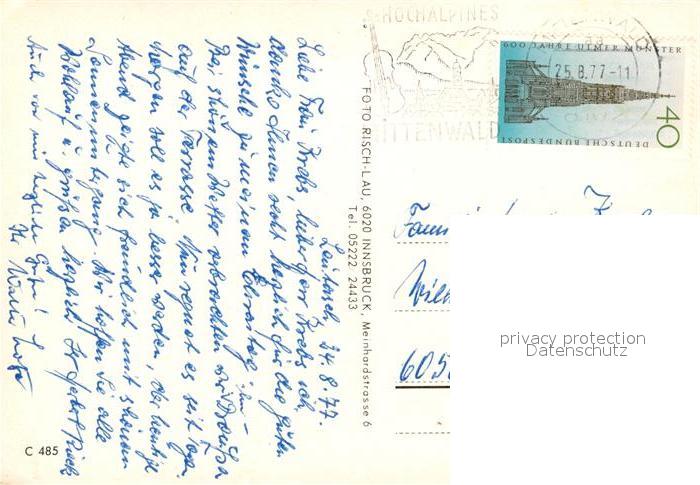 Leutasch, 24.8.77.
Liebe Frau Krebs, lieber Herr Krebs, ich
danke Ihnen recht herzlich für die guten
Wünsche zu meinem Ehrentag. Ihn
bei schönem Wetter verbrachten wir draußen
auf der Terrasse. Nun regnet es seit
morgen soll es ja besser werden, der heutige
Abend zeigte sich freundlich mit schönem
Sonnenuntergang. Wir hoffen Sie alle
wohlauf u. grüßen herzlich Ihr
Auch von mir herzliche Grüße! Ihr Walter
C 485
FOTO RISCH-LAU, 6020 INNSBRUCK, Meinhardstrasse 6
Tel. 05222 24433
HOCHALPINES
MITTENWALD
25.8.77-11
600 JAHRE ULMER MÜNSTER
DEUTSCHE BUNDESPOST
40
Fam
Wilh
605
privacy protection
Datenschutz